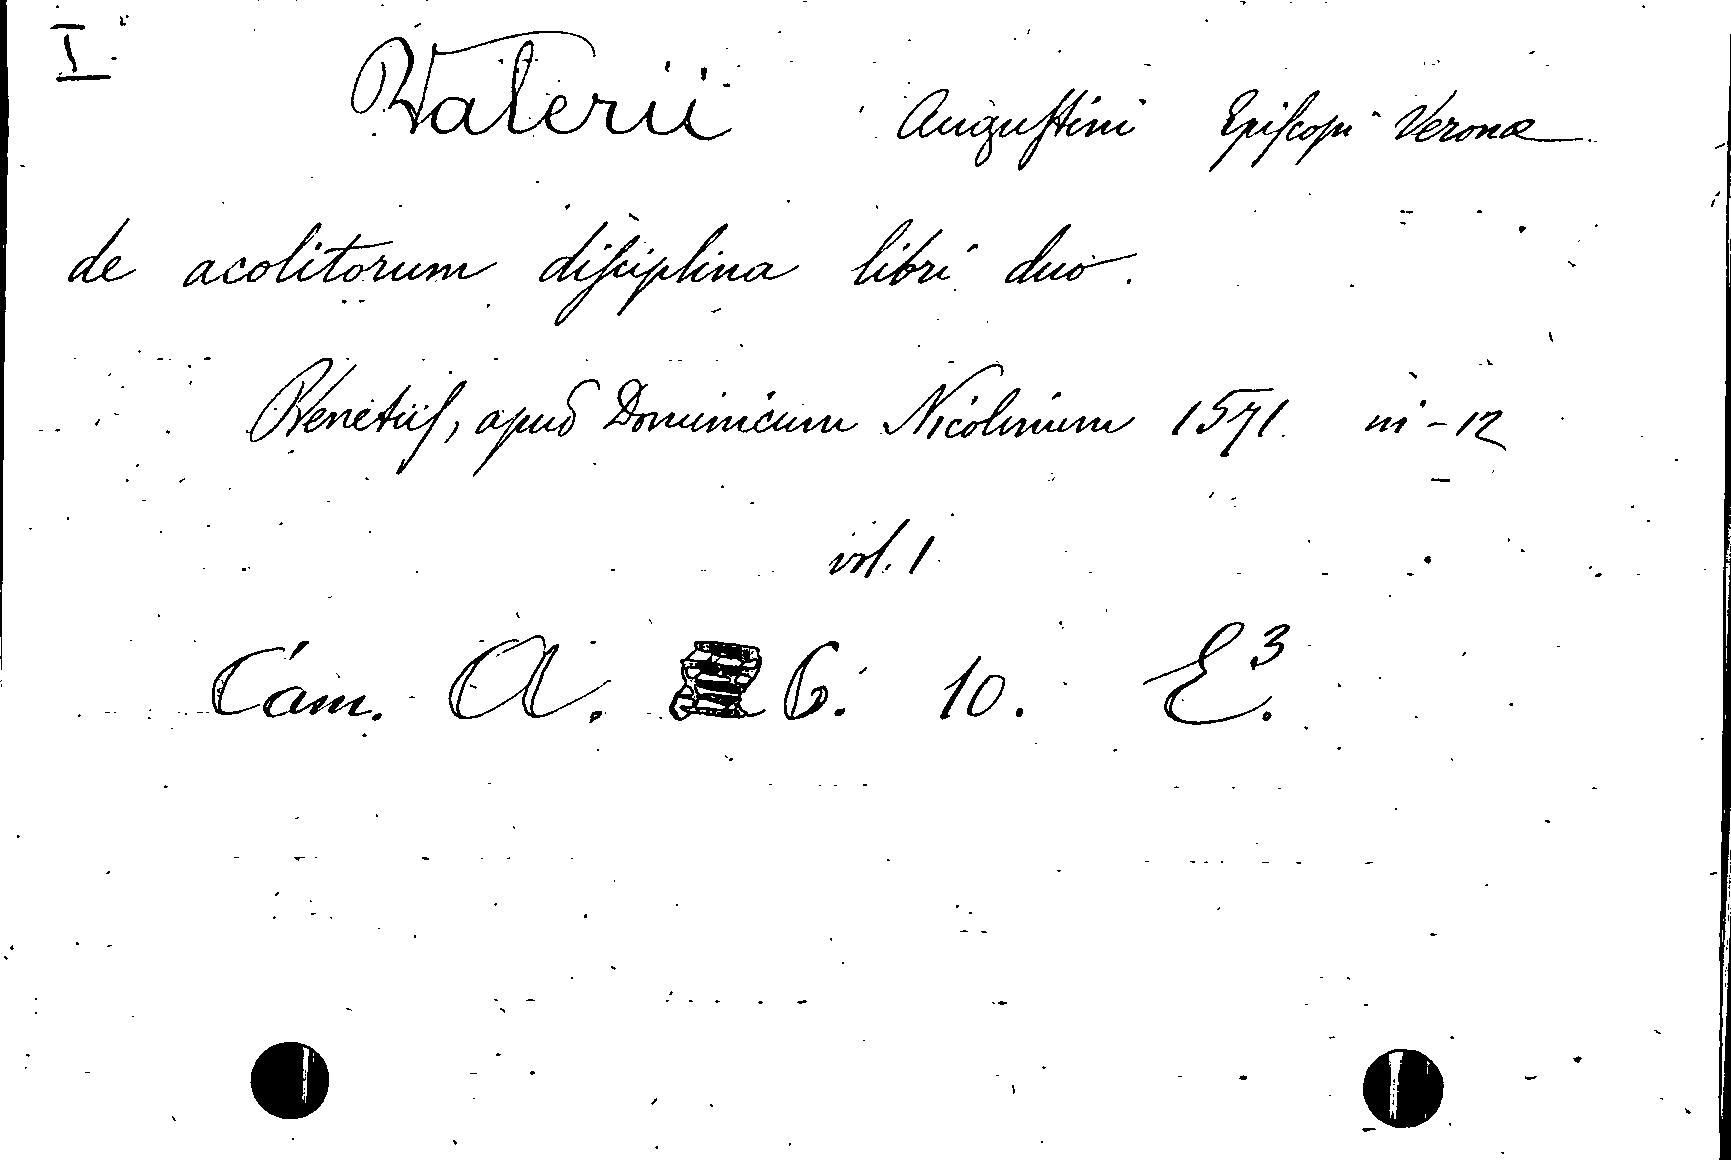 I.
Valerii Auguſtini Epiſcopi Veronæ
de acolitorum diſciplina libri duo.
Venetiiſ, apud Dominicum Nicolinium 1571. in-12
vol. 1
Cam. A. 6. 10. E.³